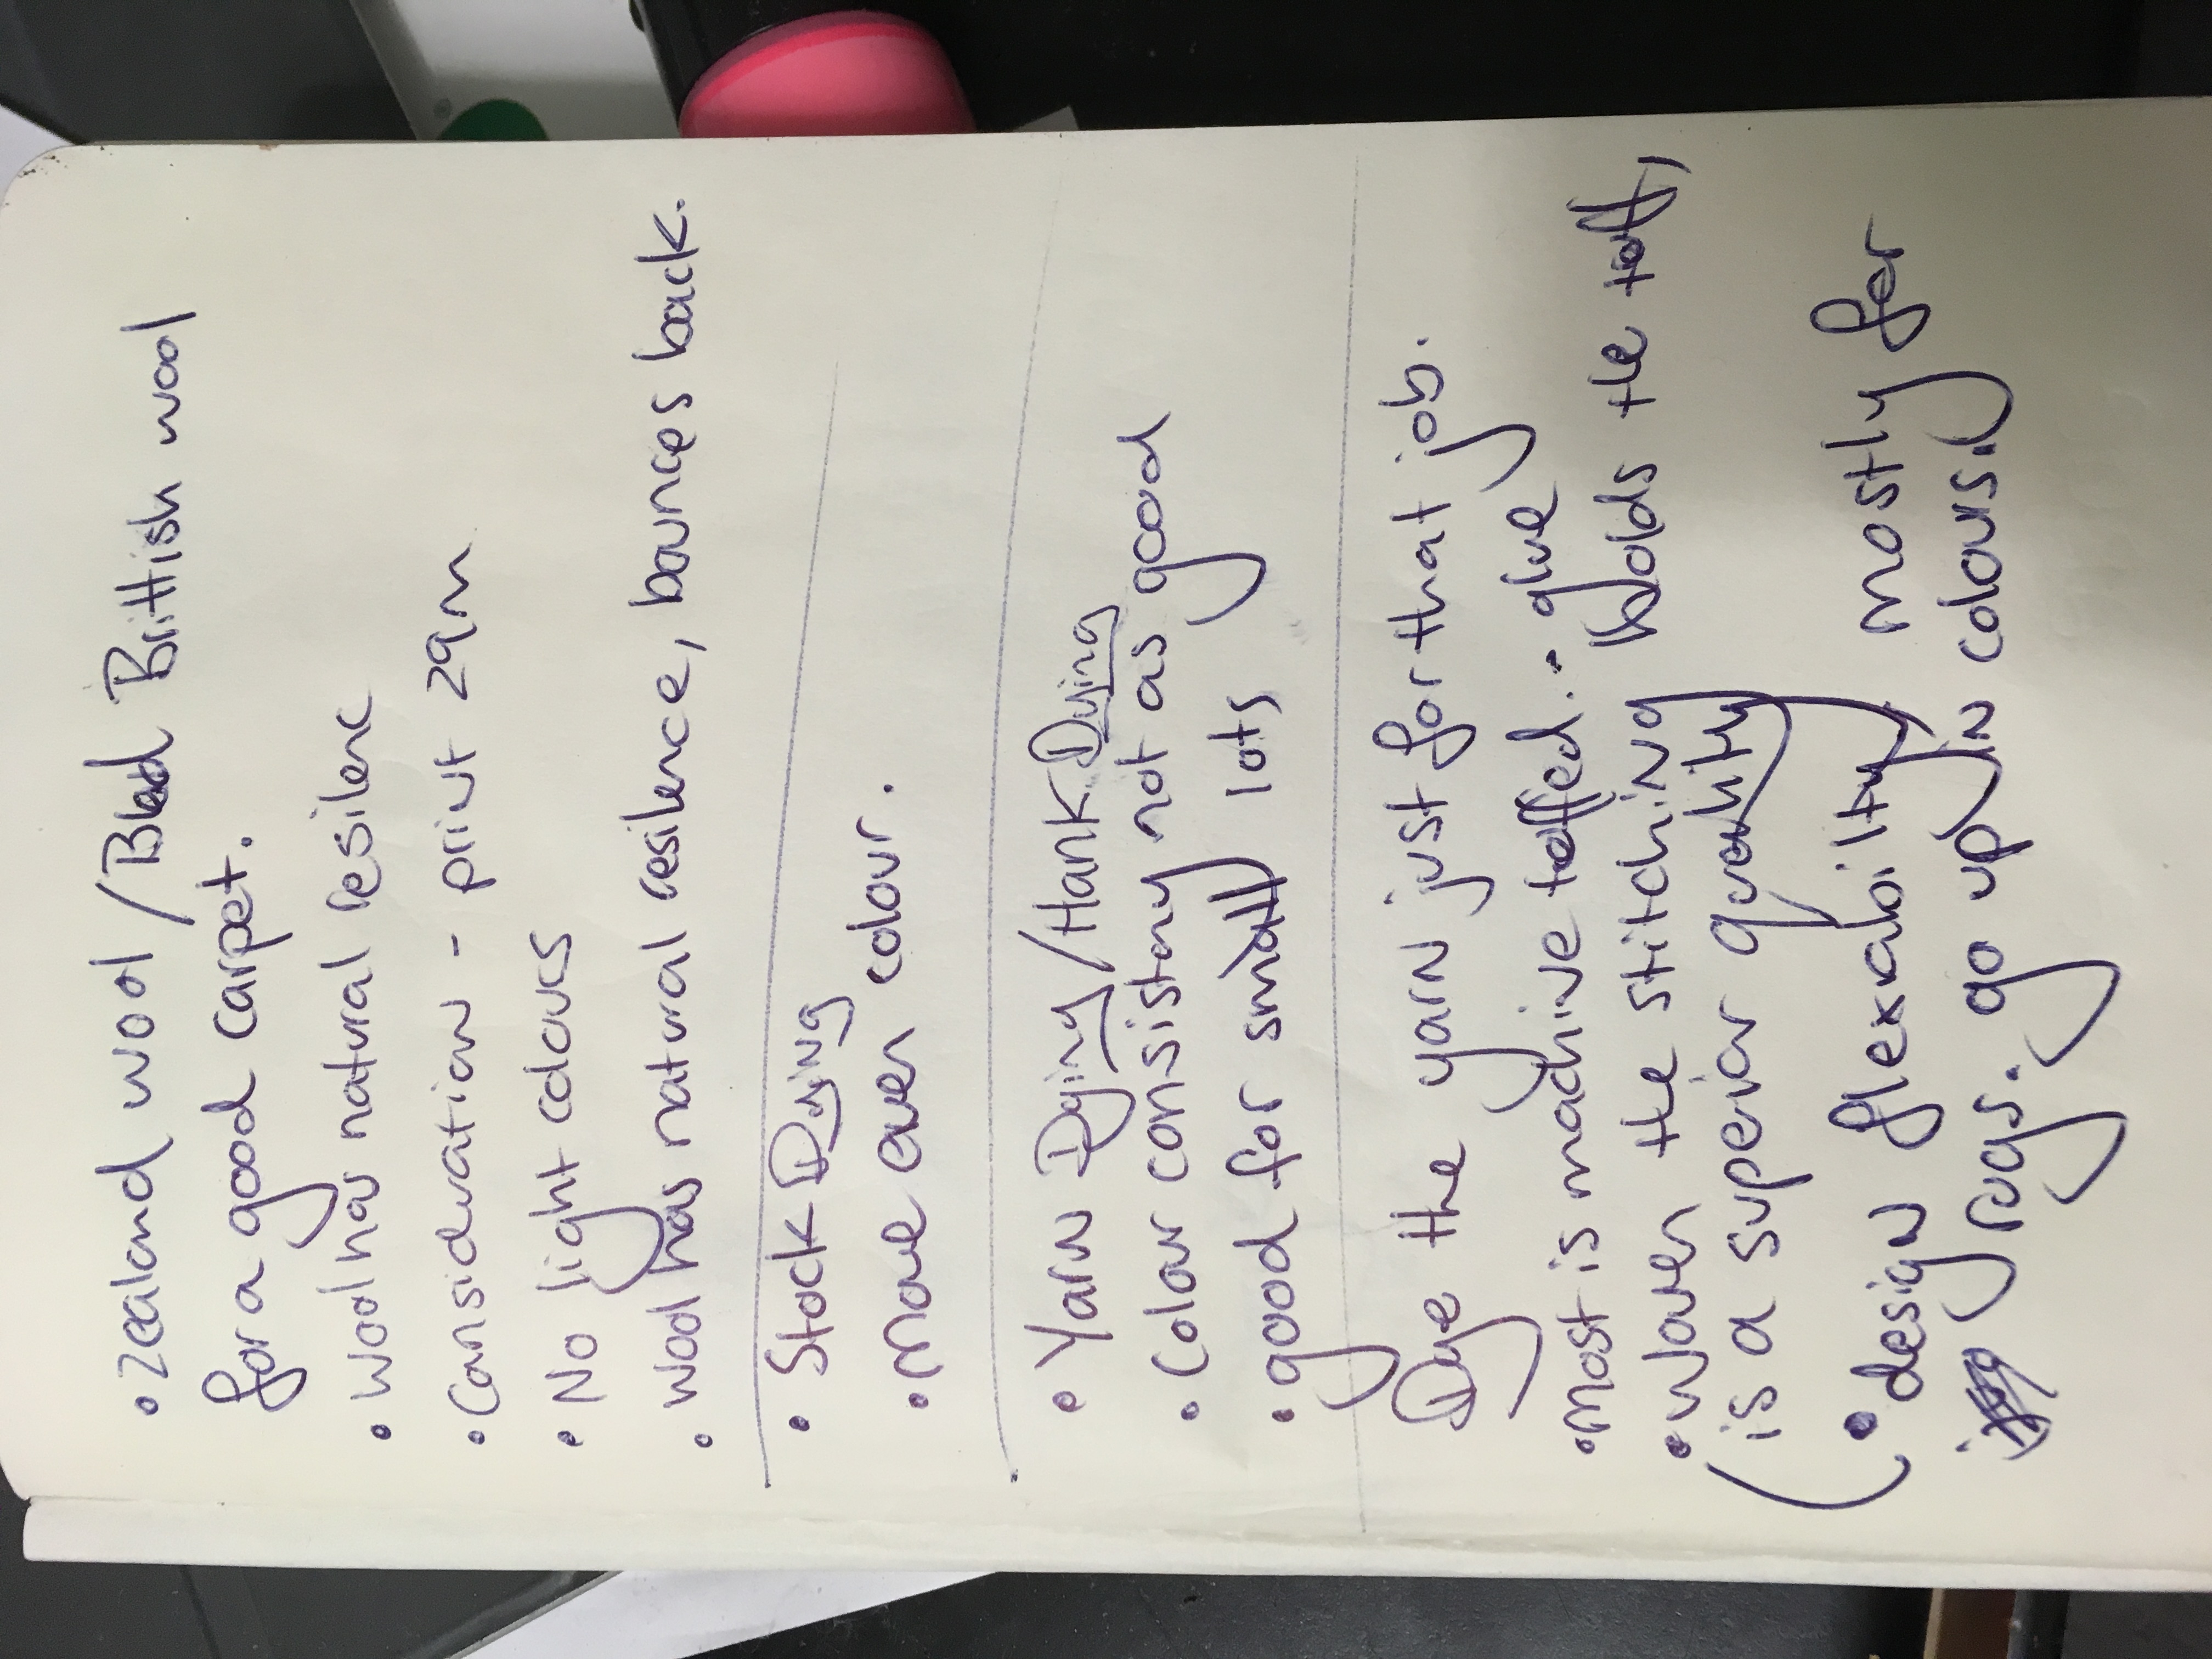 • Zealand wool / Blend Brittish wool
for a good carpet.
• wool has natural resilenc
• Consideration - print 29m
• No light colours
• wool has natural resilence, bounces back.
• Stock Dying
• More even colour.
• Yarn Dying / Hank Dying
• Colour consistany not as good
• good for small lots
Dye the yarn just for that job.
• most is machine toffed. • glue
holds the toft,
• Woven the stitching
is a superior quality
• design flexability mostly for
rugs. go up in colours!